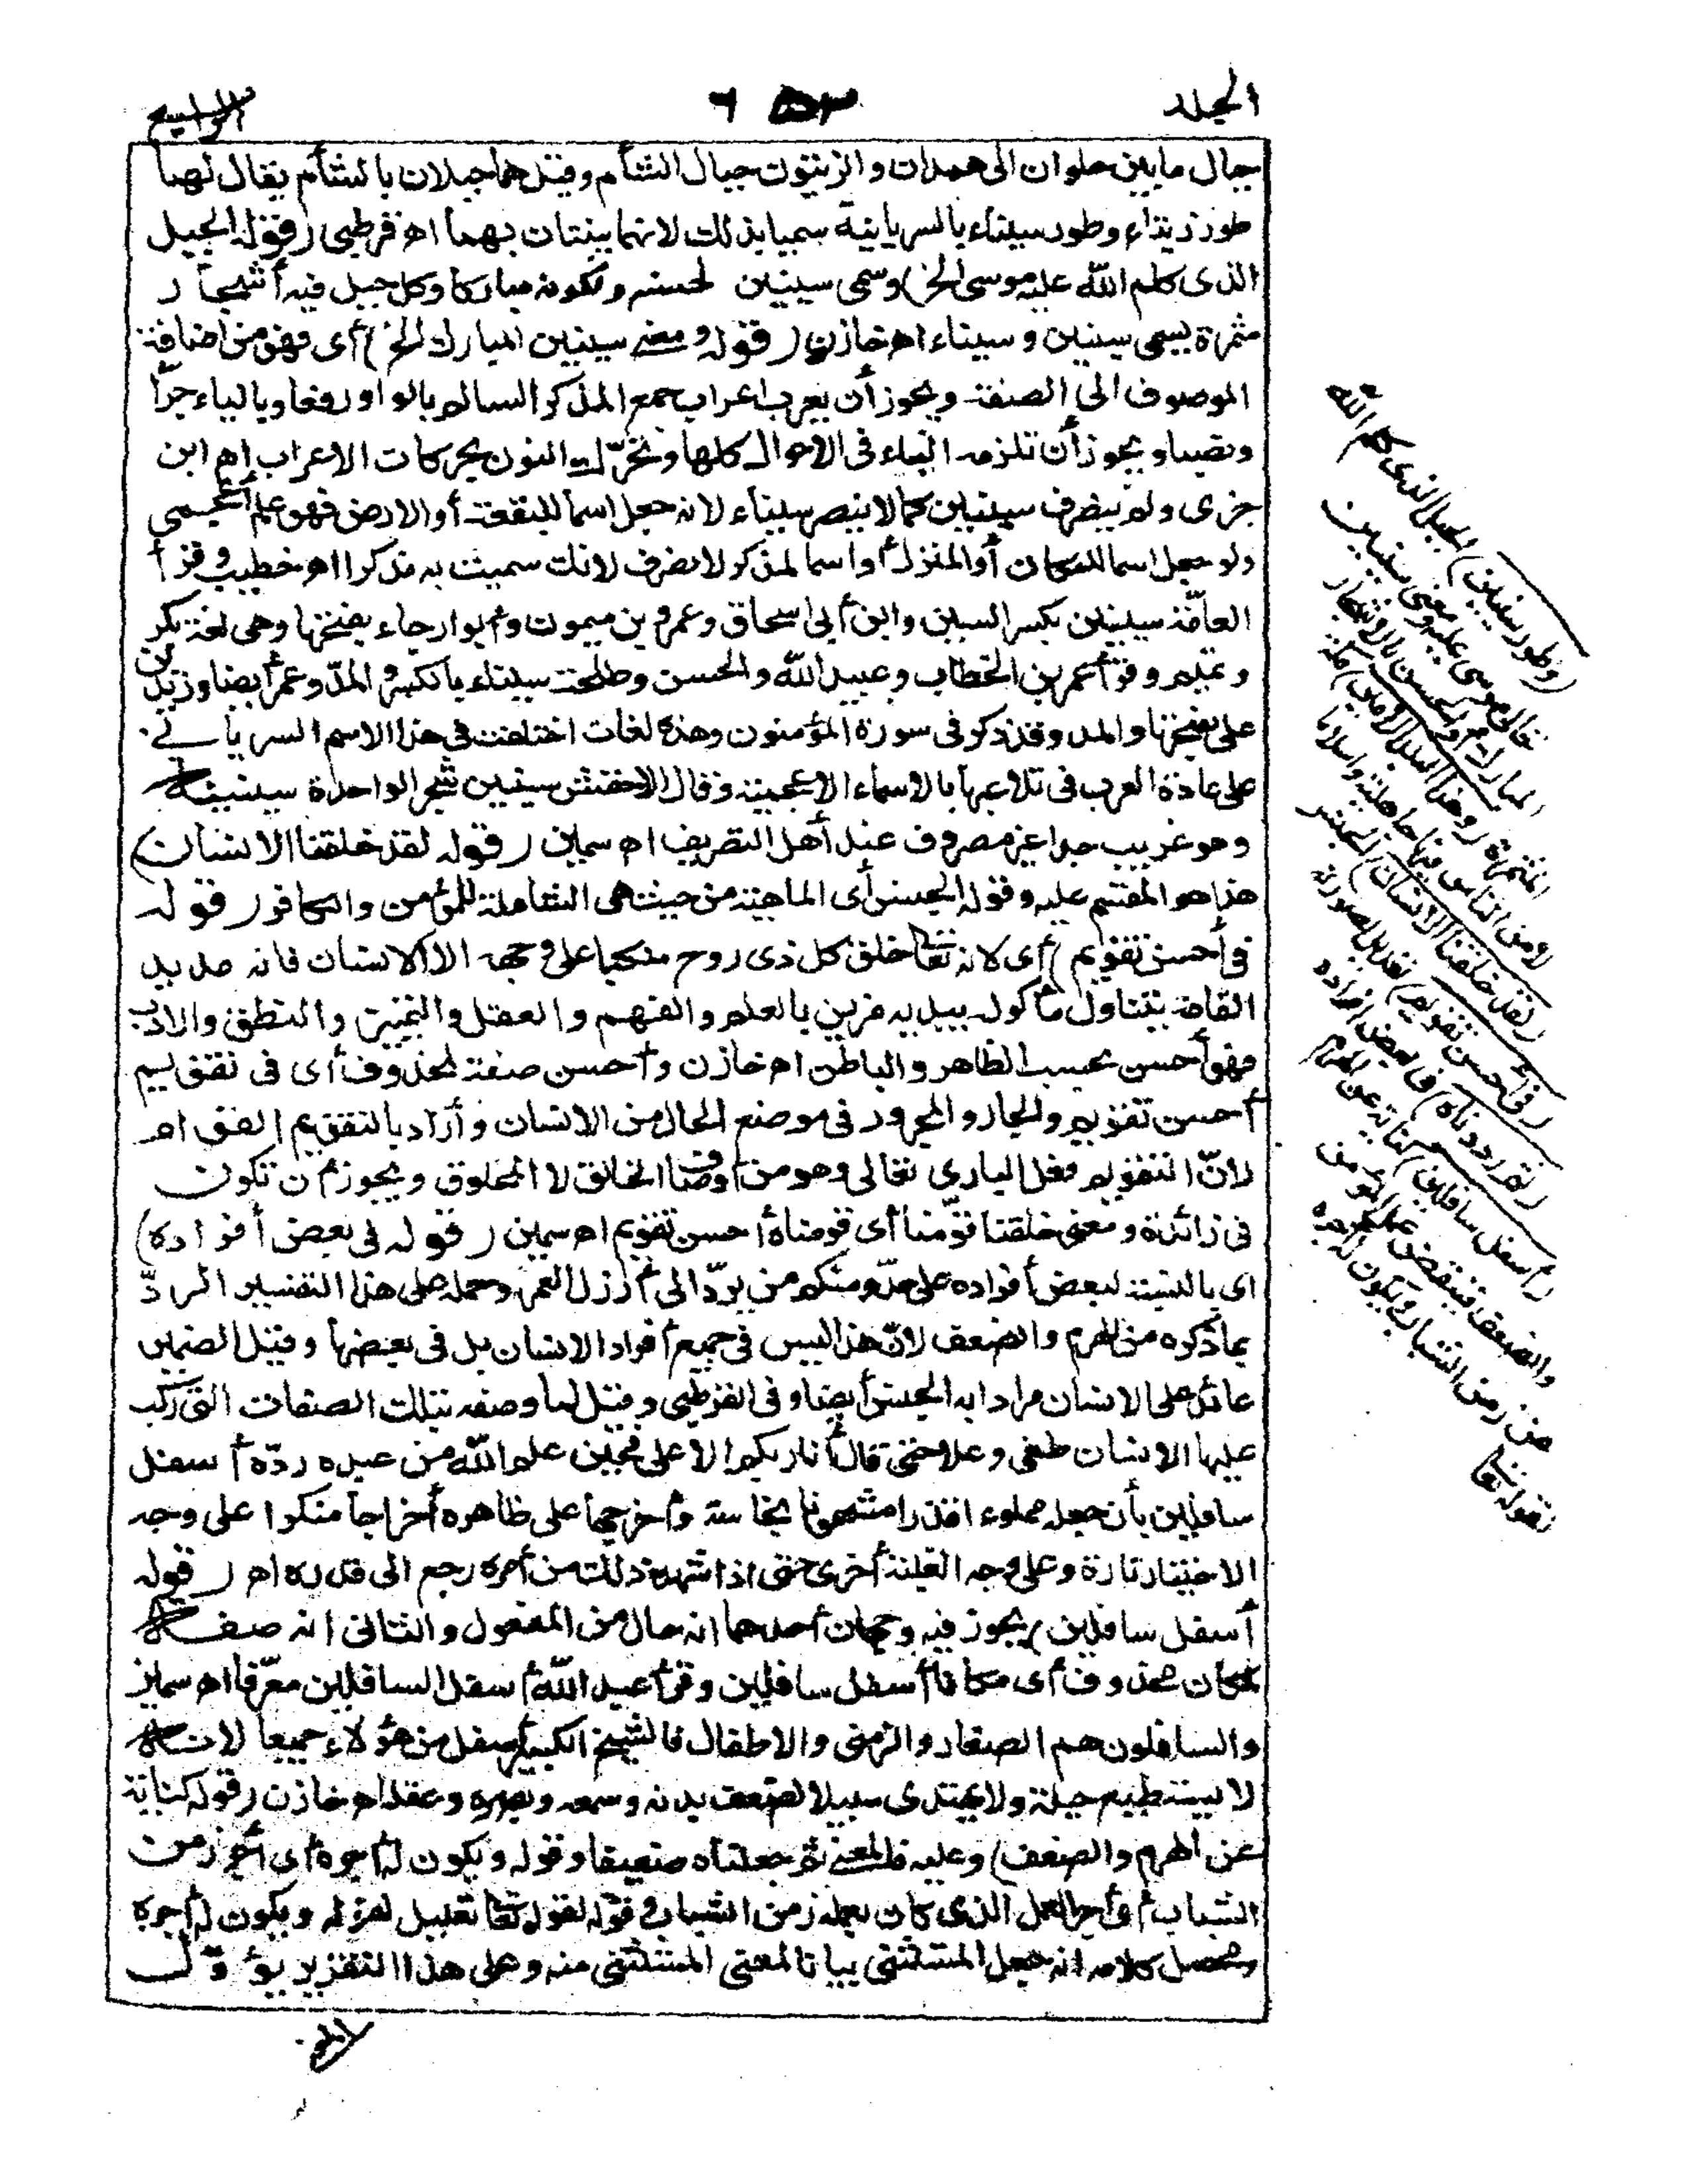 المجلد
٦
الرابع
جبال ما بين حلوان الى همدان والزيتون جبال الشأم وقيل هما جبلان بالشأم يقال لهما
طور زيتاء وطور سيناء بالسريانية سميا بذلك لانهما ينبتان بهما اه قرطبى (قوله الجبل
الذى كلم الله عليه موسى الخ) وسمى سينين لحسنه ولكونه مباركا وكل جبل فيه أشجار
مثمرة يسمى سينين وسيناء اه خازن (قوله ومعنى سينين المبارك الخ) أى فهو من اضافة
الموصوف الى الصفة ويجوز أن يعرب اعراب جمع المذكر السالم بالواو رفعا وبالياء جرّا
ونصبا ويجوز أن تلزمه الياء فى الاحوال كلها وتحرّك النون بحركات الاعراب اه ابن
جزى ولم ينصرف سينين كما لا ينصر سيناء لانه جعل اسما للبقعة أو الارض فهو علم أعجمى
ولو جعل اسما للمكان أو المنزل أو اسما لمذكر لانصرف لانك سميت به مذكرا اه خطيب وقرأ
العامّة سينين بكسر السين وابن أبى اسحاق وعمرو بن ميمون وأبو رجاء بفتحها وهى لغة بكر
وتميم وقرأ عمر بن الخطاب وعبيد الله والحسن وطلحة سيناء بالكسر والمدّ وعمر أيضا وزيد بن
على بفتحها والمد وقد ذكر فى سورة المؤمنون وهذه لغات اختلفت فى هذا الاسم السريانى
على عادة العرب فى تلاعبها بالاسماء الاعجمية وقال الاخفش سينين شجر الواحدة سينينة
وهو غريب جدا غير معروف عند أهل التصريف اه سمين (قوله لقد خلقنا الانسان)
هذا هو المقسم عليه وقوله الجنس أى الماهية من حيث هى الشاملة للمؤمن والكافر (قوله
فى أحسن تقويم) أى لانه تعا خلق كل ذى روح منكبا على وجهه الا الانسان فانه مديد
القامة يتناول مأكوله بيديه مزين بالعلم والفهم والعقل والتمييز والنطق والادب
فهو أحسن بحسب الظاهر والباطن اه خازن وأحسن صفة لمحذوف أى فى تقويم
أحسن تقويم والجار والمجرور فى موضع الحال من الانسان وأراد بالتقويم القوام
لانّ التقويم فعل البارى تعالى وهو من أوصاف الخالق لا المخلوق ويجوز أن تكون
فى زائدة ومعنى خلقنا قوّمنا أى قومناه أحسن تقويم اه سمين (قوله فى بعض أفراده)
اى بالنسبة لبعض أفراده على حدّ ومنكم من يردّ الى أرذل العمر وحمله على هذا التفسير الردّ
بما ذكره من الهرم والضعف لانّ هذا ليس فى جميع أفراد الانسان بل فى بعضها وقيل الضمير
عائد على الانسان مرادا به الجنس أيضا وفى القرطبى وقيل لما وصفه بتلك الصفات التى ركب
عليها الانسان طغى وعلا حتى قال أنا ربكم الاعلى فحين علم الله من عبده ردّه أسفل
سافلين بأن جعله مملوءا قذرا مشحونا نجاسة وأخرجها على ظاهره أخراجا منكرا على وجه
الاختيار تارة وعلى وجه الغلبة أخرى حتى اذا شهد ذلك من أمره رجع الى قدره اه (قوله
أسفل سافلين) يجوز فيه وجهان أحدهما انه حال من المفعول والثانى انه صفة
لمكان محذوف أى مكانا أسفل سافلين وقرأ عبد الله أسفل السافلين معرّفا اه سمين
والسافلون هم الصغار والزمنى والاطفال فالشيخ الكبير أسفل من هؤلاء جميعا لانه
لا يستطيع حيلة ولا يهتدى سبيلا لضعف بدنه وسمعه وبصره وعقله اه خازن (قوله كناية
عن الهرم والضعف) وعليه فالمعنى ثم جعلناه ضعيفا وقوله ويكون له أجره أى أجر زمن
الشباب أى أجر العمل الذى كان يعمله زمن الشباب وقوله لقوله تعا تعليل لقوله ويكون له أجره
محصل كلامه انه جعل المستثنى بيانا لمعنى المستثنى منه وعلى هذا التقرير يؤول
(وطور سينين) الجبل الذى كلم الله
تعالى موسى عليه ومعنى سينين
المبارك أو الحسن بالاشجار
المثمرة (وهذا البلد الامين) مكة
لامن الناس فيها جاهلية واسلاما
(لقد خلقنا الانسان) الجنس
(فى أحسن تقويم) تعديل لصورته
(ثم رددناه) فى بعض أفراده
(أسفل سافلين) كناية عن الهرم
والضعف فينقص عمل المؤمن
عن زمن الشباب ويكون له أجره
لقوله تعا